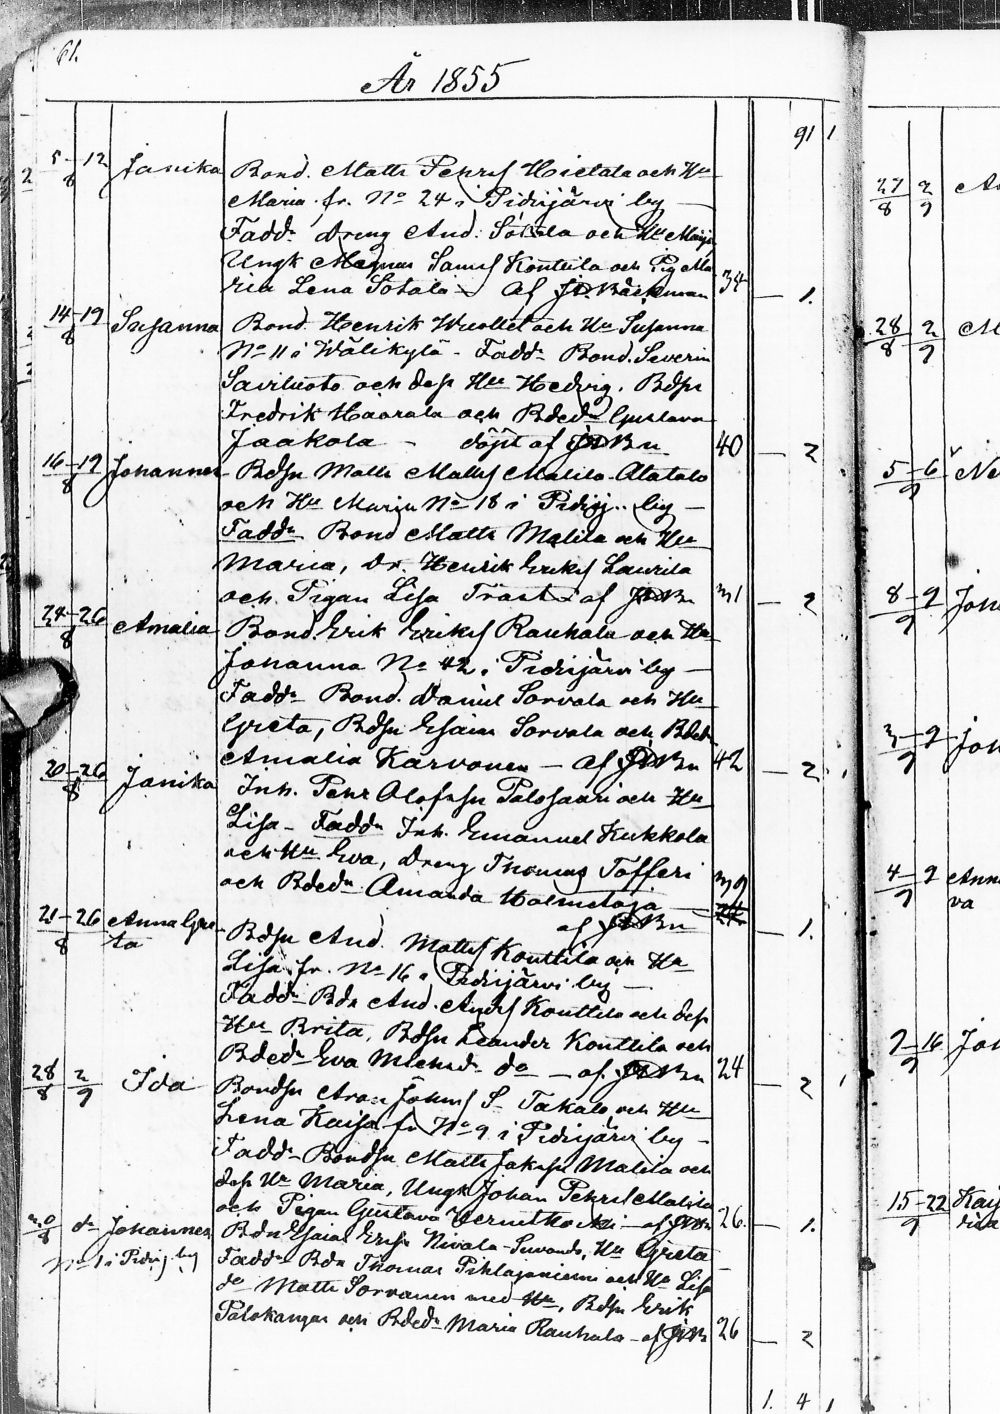 61.
År 1855
91 1
5-12
8
Janika
Bond. Matts Pehrs Hietala och Hu
Maria fr. No 24 i Pidisjärvi by
Fadd. Dreng And. Sotala och Hu Maija
Ungk Magnus Samls Konttila och Pig Ma
ria Lena Sotala Af JD. Bäckman
34
1.
14-19
8
Susanna
Bond. Henrik Wuollet och Hu Susanna
No 11 i Wälikylä - Fadd. Bond. Severin
Saviluoto och dess Hu Hedvig. Bdsn
Fredrik Haarala och Bdedr Gustava
Jaakola - döpt af JDBn
40
2
16-19
8
Johannes
Bdsn Matts Matts Malila Alatalo
och Hu Maria No 18 i Pidisj.. by
Fadd. Bond Matts Malila och Hu
Maria, Dr. Henrik Eriks Laurila
och Pigan Lisa Träst af JDBn
31
2
24-26
8
Amalia
Bond. Erik Eriks Rauhala och Hu
Johanna No 42 i Pidisjärvi by
Fadd. Bond. Daniel Sorvala och Hu
Greta, Bdsn Esaias Sorvala och Bdedr
Amalia Karvonen - af JDBn
42
2
20-26
8
Janika
Inh. Pehr Olofsson Palosaari och Hu
Lisa - Fadd. Inh. Emanuel Kukkola
och Hu Eva, Dreng Thomas Tofferi
och Bdedr Amanda Holmstöja
af JDBn
39
1.
21-26
8
Anna Gre-
ta
Bdsn And. Matts Konttila och Hu
Lisa fr. No 16 i Pidisjärvi by
Fadd. Bdn And. Ands Konttila och dess
Hu Brita, Bdsn Leander Konttila och
Bdedr Eva do - af JDBn
24
2
28 2
8 9
Ida
Bondsn Aron Johans S. Takalo och Hu
Lena Kaisa fr No 9 i Pidisjärvi by
Fadd. Bondsn Matts Jakss Malila och
dess Hu Maria, Ungk Johan Pehrs Malila
och Pigan Gustava af JDBn
26.
1.
30 do
8
Johannes
No 1 i Pidisj. by
Bdn Esaias Ersson Nivala-Suvando, Hu Greta
Fadd. Bdn Thomas Pihlajaniemi och Hu Lisa
do Matts Sorvanen med Hu, Bdsn Erik
Palokangas och Bdedr Maria Rauhala - af JDBn
26
2
1. 4 1
27 2
8 9
28 2
8 9
M
5-6
9
8-9
9
Joh
3-9
9
Joh
4-9
9
Ann
va
2-16
9
Joh
15-22
9
Kaj